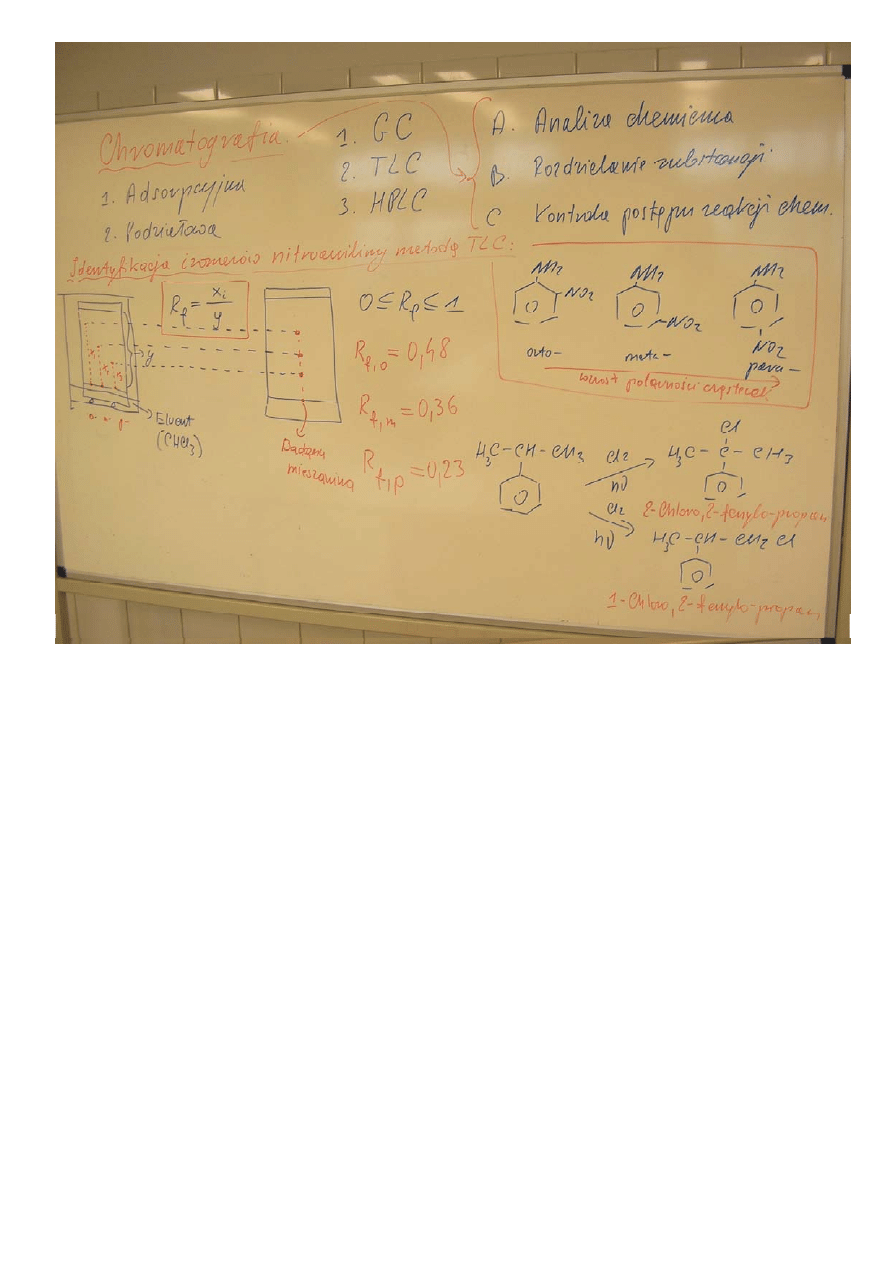 Chromatografia.
1. Adsorpcyjna
2. Podziałowa
1. GC
2. TLC
3. HPLC
A. Analiza chemiczna
B. Rozdzielanie substancji
C Kontrola postępu reakcji chem.
Identyfikacja izomerów nitroaniliny metodą TLC:
R_f = x_i / y
y
o- m- p-
Eluent
(CHCl₃)
Badana
mieszanina
0 ≤ R_f ≤ 1
R_f,o = 0,48
R_f,m = 0,36
R_f,p = 0,23
NH₂ NH₂ NH₂
NO₂ NO₂ NO₂
orto- meta- para-
wzrost polarności cząsteczek
H₃C-CH-CH₃
Cl₂
hν
Cl
H₃C-C-CH₃
2-Chloro,2-fenylo-propan
Cl₂
hν
H₃C-CH-CH₂Cl
1-Chloro,2-fenylo-propan